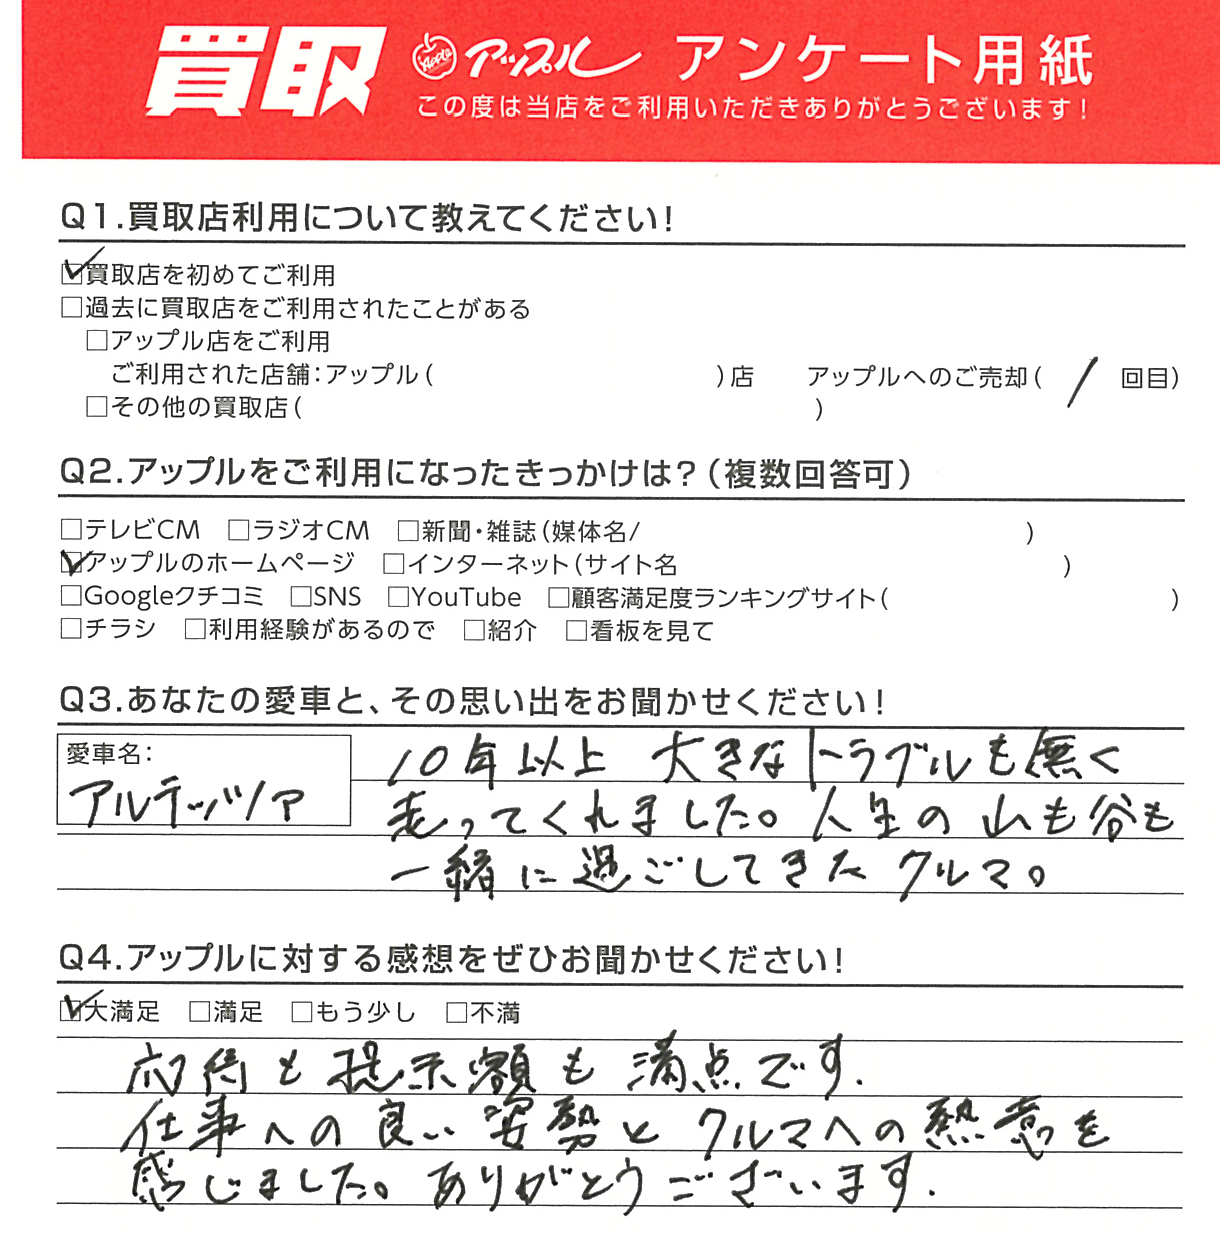 買取 Apple アップル アンケート用紙
この度は当店をご利用いただきありがとうございます!
Q1.買取店利用について教えてください!
☑買取店を初めてご利用
□過去に買取店をご利用されたことがある
□アップル店をご利用
ご利用された店舗:アップル( )店 アップルへのご売却( / 回目)
□その他の買取店( )
Q2.アップルをご利用になったきっかけは?(複数回答可)
□テレビCM □ラジオCM □新聞・雑誌(媒体名/ )
☑アップルのホームページ □インターネット(サイト名 )
□Googleクチコミ □SNS □YouTube □顧客満足度ランキングサイト( )
□チラシ □利用経験があるので □紹介 □看板を見て
Q3.あなたの愛車と、その思い出をお聞かせください!
愛車名:
アルテッツァ
10年以上 大きなトラブルも無く
走ってくれました。人生の山も谷も
一緒に過ごしてきたクルマ。
Q4.アップルに対する感想をぜひお聞かせください!
☑大満足 □満足 □もう少し □不満
応待も提示額も満点です.
仕事への良い姿勢とクルマへの熱意を
感じました。ありがとうございます.